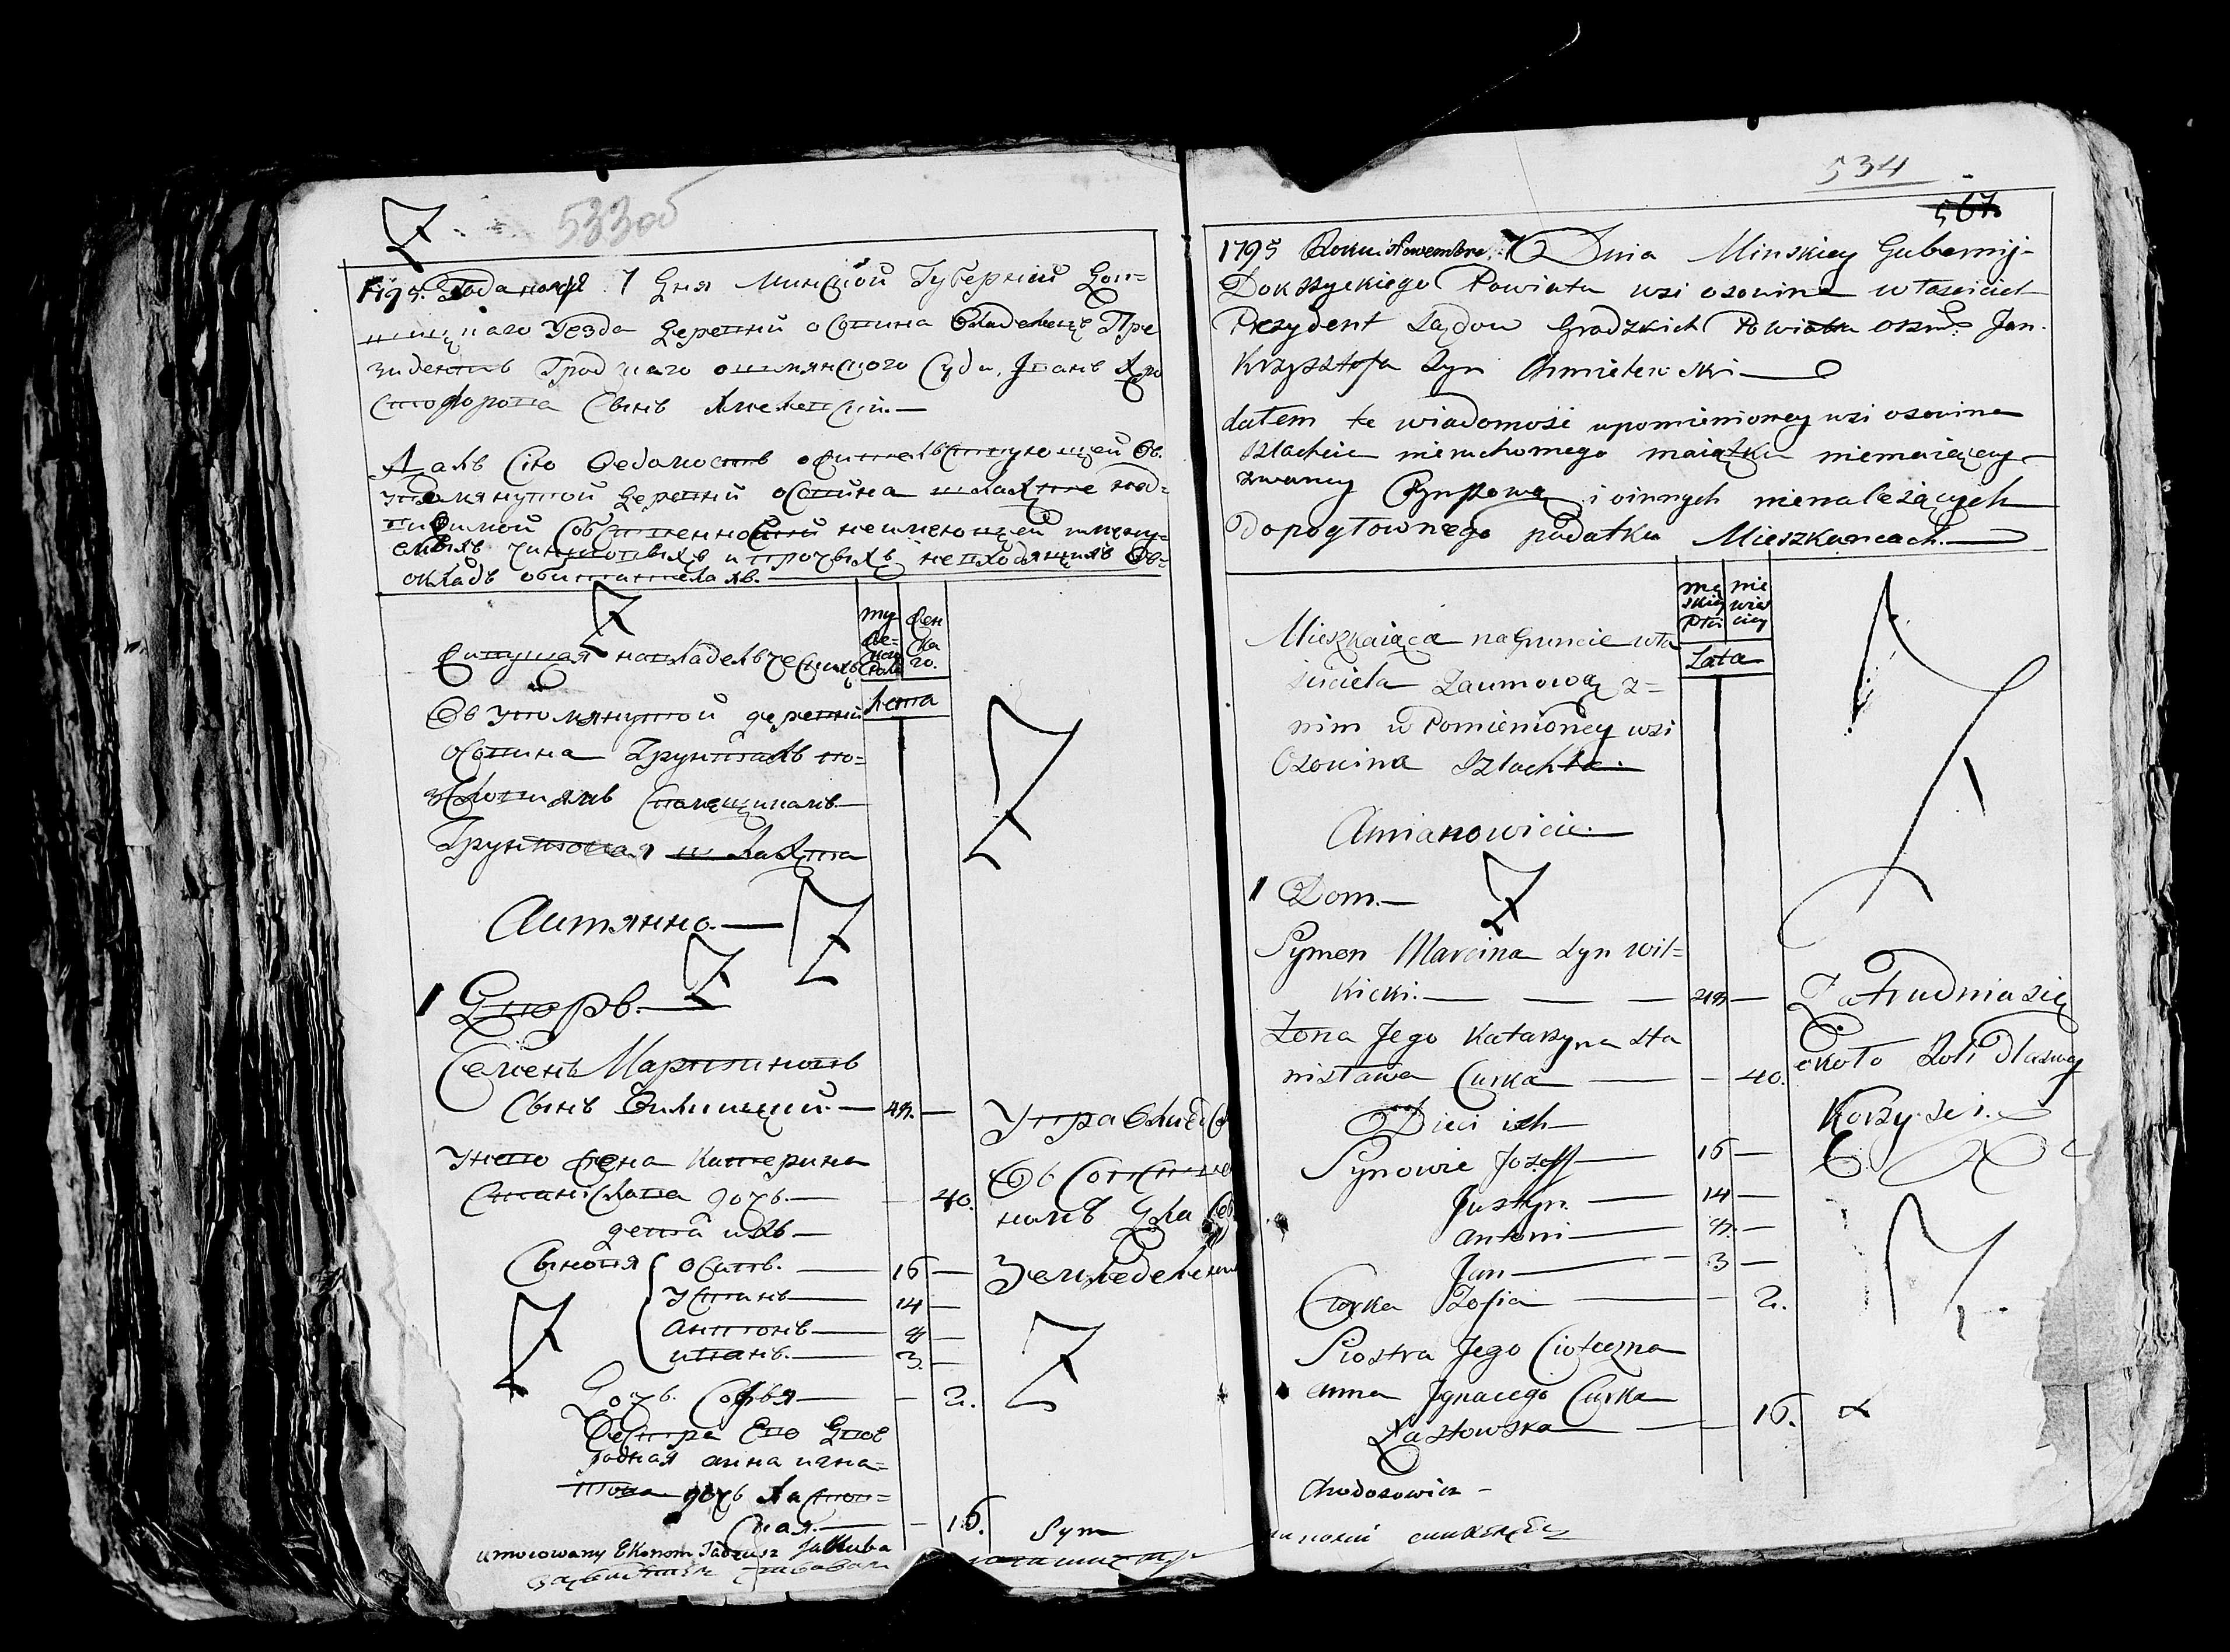 533 об
1795. Года ноября 7 дня Минской Губернии Док-
шицкаго уезда деревни осовина владелецъ Пре
зидентъ Градскаго ошмянского суда, Иванъ Хри
стофорова сынъ Хмелевский.—
Далъ сію ведомость о жительствующей въ
упомянутой деревни осовина шляхте нед-
вижимой собственности неимеющей имену-
емыхъ чиншовыхъ и прочихъ невходящихъ въ-
окладъ обитателахъ.—
мужескаго пола
женскаго
лета
Живущая на владельческихъ
въ упомянутой деревни
осовина грунтахъ по-
условиямъ с помещикомъ
Грунтовая шляхта
1 Дворъ.—
Семенъ Мартиновъ
сынъ Вилкицкий.— 48.—
У него жена Катерина
Станислава дочь.— — 40.
дети ихъ—
Сыновя осипъ. — 16 —
Устинъ — 14 —
антонъ — 8 —
иванъ. — 3. —
Дочь Софья — — 2.
Сестра Его Двою
родная анна игна-
това дочь Ластов-
ская. — — 16.
Земледелием
umocowany Ekonom Tadeusz Jakuba
Sym
534
567
1795 Roku Nowembra 7 Dnia Minskiey Gubernij-
Dokszyckiego Powiatu wsi osowina właściciel
Prezydent Sądow Gradzkich Powiatu oszm: Jan.
Krzysztofa Syn Chmielewski—
dałem tę wiadomość wpomienioney wsi osowina
szlachcie nieruchomego maiątku niemaiącey-
zwaney Czynszową i innych nienależących
Dopogłownego podatku Mieszkancach.—
męskiey płci
niewieściey
Lata
Mieszkaiąca naGruncie wła
ściciela Zaumową z=
nim w Pomienioney wsi
Osowina Szlachta.
1 Dom.—
Symon Marcina Syn Wil=
kicki.— — — 48 —
Żona Jego Katarzyna Sta
nisława Curka — — 40.
Dzieci ich
Synowie Jozeff — 16 —
Justyn. — 14 —
Antoni — 8. —
Jan — 3 —
Curka Zofia — — 2.
Siostra Jego Cioteczna
Anna Jgnacego Curka
Łastowska — — 16.
Zatrudnia się
około Roli Dlaswey
Korzyści.
Chodosowicz —